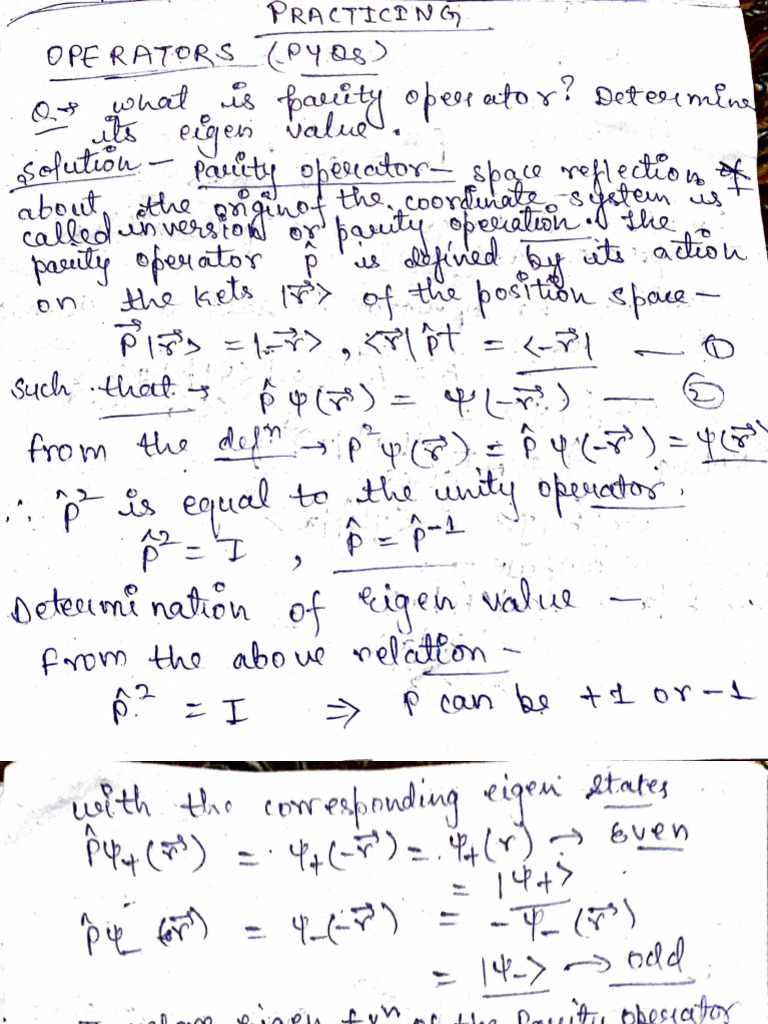 PRACTICING
OPERATORS (PYQs)
Q→ what is parity operator? Determine
its eigen value.
Solution - Parity operator - space reflection
about the origin of the coordinate system is
called inversion or parity operation. The
parity operator p̂ is defined by its action
on the kets |r⃗> of the position space -
P⃗|r⃗> = |-r⃗>, <r⃗|p̂† = <-r⃗| — ①
such that → p̂ψ(r⃗) = ψ(-r⃗) — ②
from the defⁿ → p²ψ(r⃗) = p̂ψ(-r⃗) = ψ(r⃗)
∴ p̂² is equal to the unity operator.
p̂² = I , p̂ = p̂⁻¹
Determination of eigen value -
From the above relation -
p̂² = I ⇒ p can be +1 or -1
with the corresponding eigen states
p̂ψ₊(r⃗) = ψ₊(-r⃗) = ψ₊(r) → Even
= |ψ₊>
p̂ψ₋(r⃗) = ψ₋(-r⃗) = -ψ₋(r⃗)
= |ψ₋> → odd
eigen fuⁿ of the Parity operator